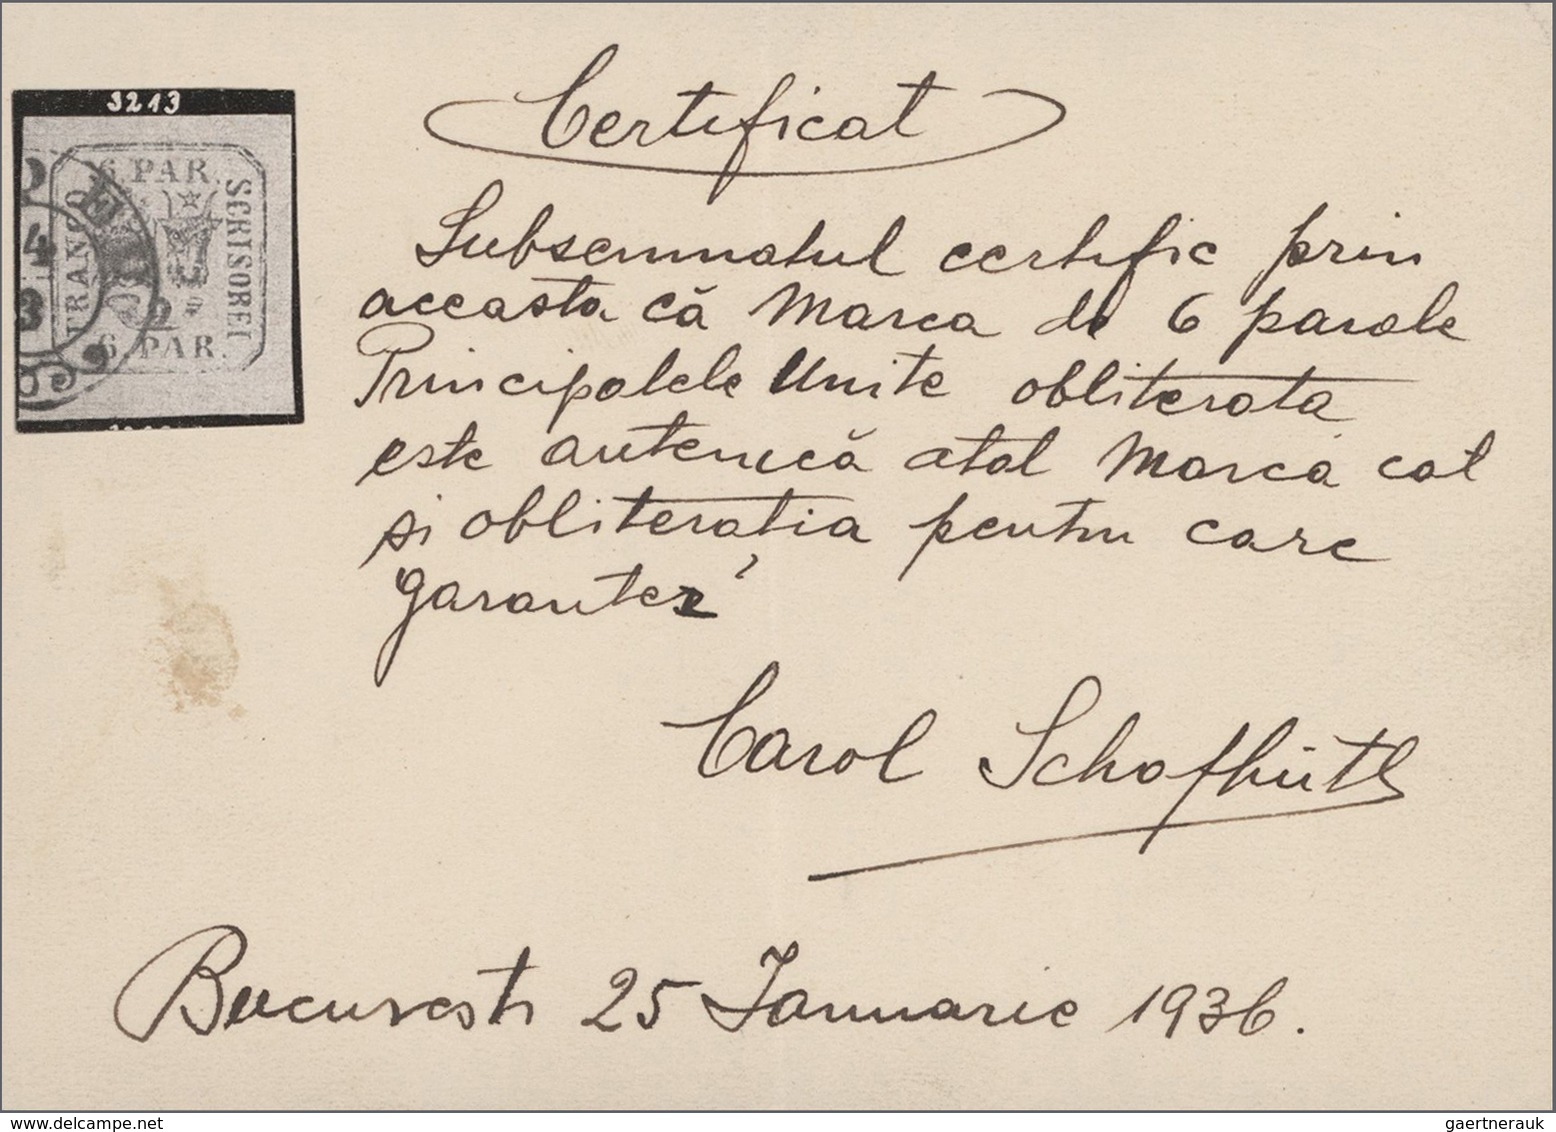 3213
6. PAR.
FRANCO
SCRISOREI
6. PAR.
Certificat
Subsemnatul certific prin
aceasta că Marca de 6 parale
Principatele Unite obliterata
este autentică atat Marca cat
si obliteratia pentru care
garantez
Carol Schafhütl
Bucuresti 25 Ianuarie 1936.
www.delcampe.net
gaertnerauk